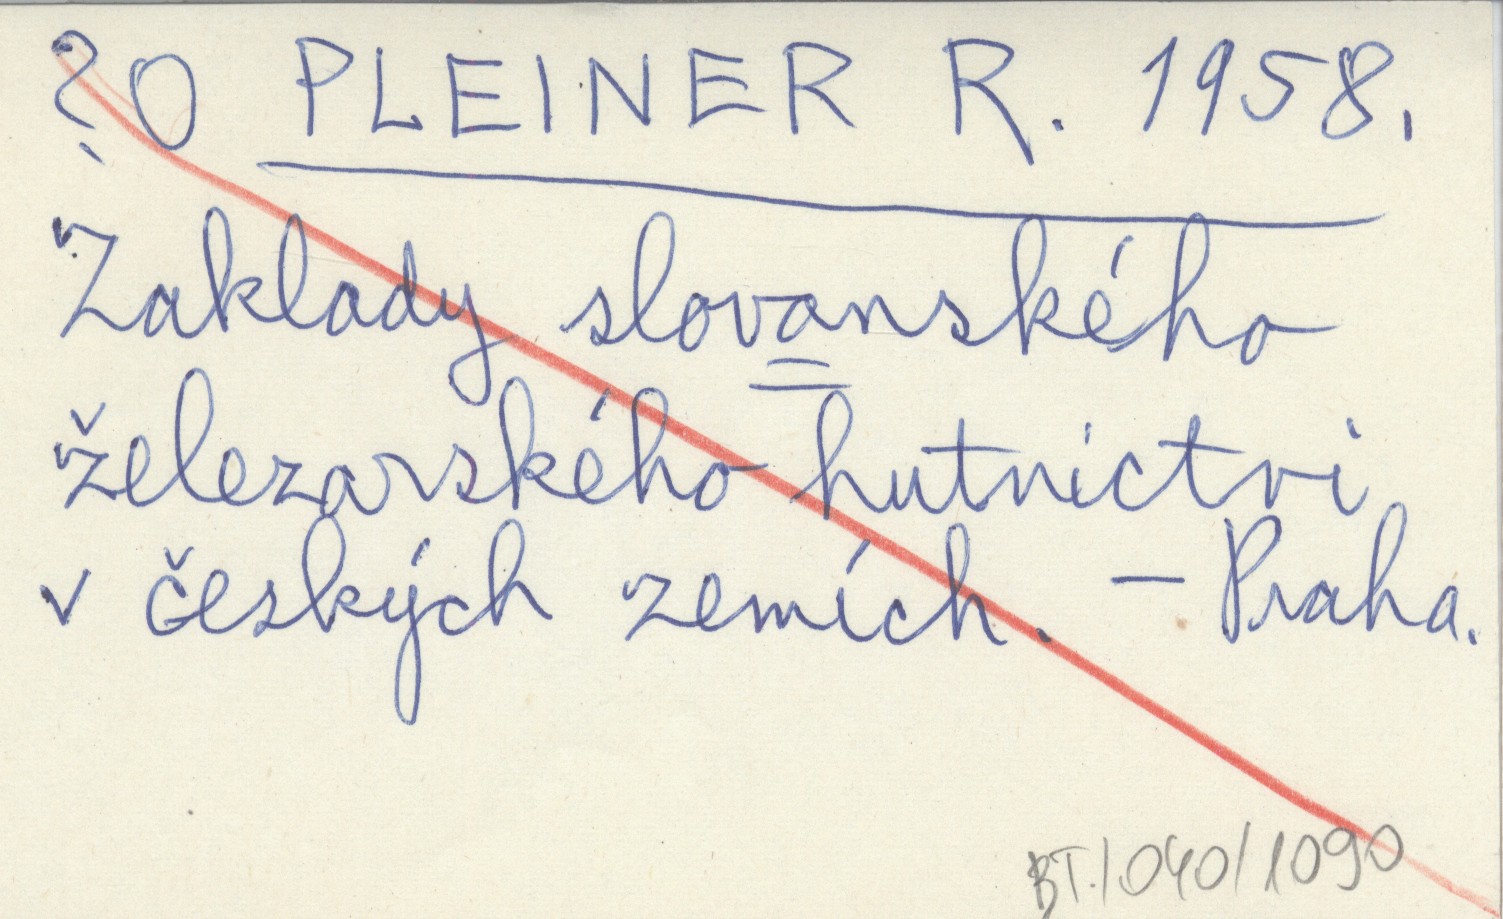 ?O PLEINER R. 1958.
Zaklady slovanského
železarského hutnictvi
v českých zemích. - Praha.
BT./040/1090